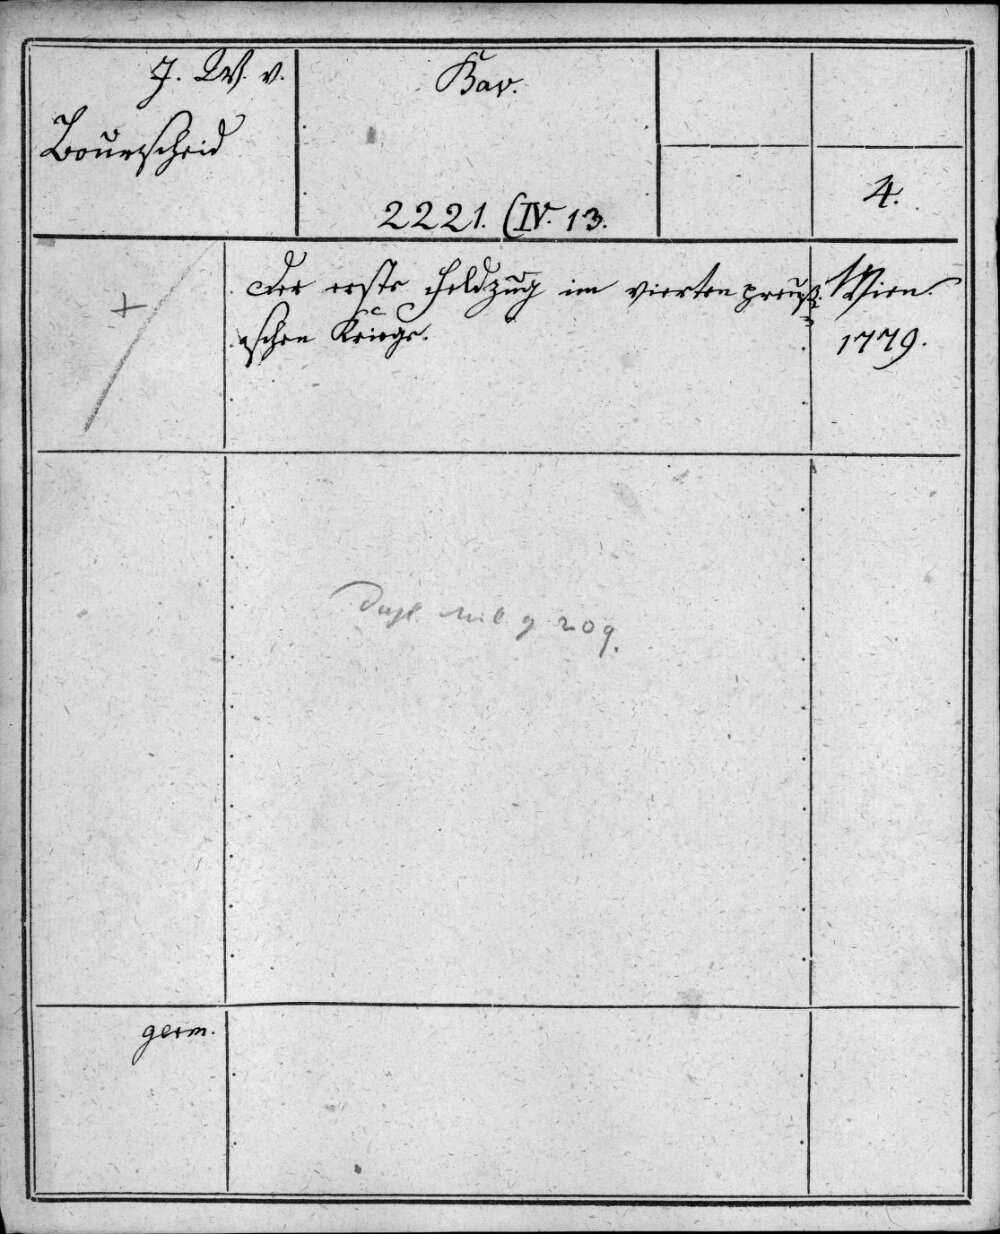 J. W. v.
Bourscheid
Bav.
2221. (IV. 13.
4.
+
Der erste Feldzug im vierten preußi-
schen Kriege.
Wien.
1779.
Dupl. Mil. g. 209.
germ.